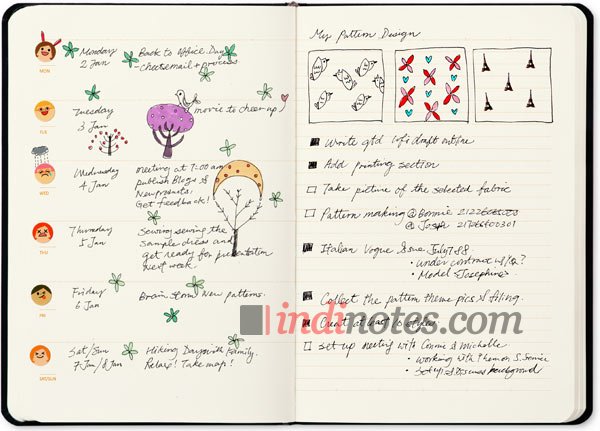 MON
Monday
2 Jan
Back to office Day
TUE
Tuesday
3 Jan
movie to cheer up!
WED
Wednesday
4 Jan
meeting at 7:00 am
publish Blogs &
New products,
Get feedback!
THU
Thursday
5 Jan
Sewing sewing the
sample dress and
get ready for presentation
Next week.
FRI
Friday
6 Jan
Brain storm New patterns.
SAT/SUN
Sat/Sun
7 Jan/8 Jan
Hiking Day with Family.
Relax! Take map!
My Pattern Design
Write draft outline
Add printing section
Take picture of the selected fabric
Pattern making @ Bonnie
@ Josh
Italian Vogue Issue July
• under contract
• Model Josephine
Collect the pattern theme pics & filing.
Creat at least 10 styles
set up meeting with Connie & Michelle
• working with
• Set up & Discuss background
indinotes.com